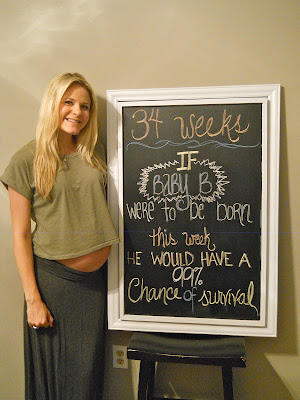 34 weeks
IF
BABY B
WERE to be born
this week
HE WOULD HAVE A
99%
Chance of survival